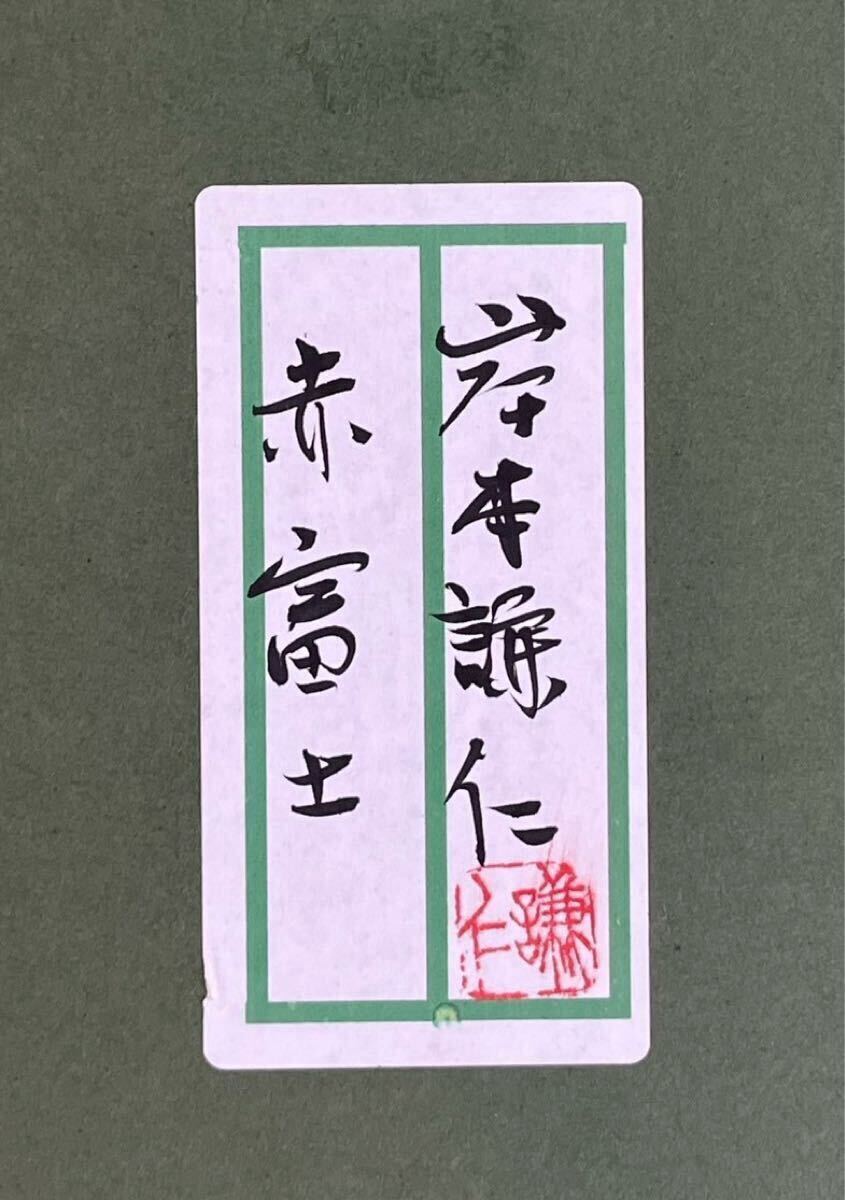 岸本謙仁
謙仁
赤富士